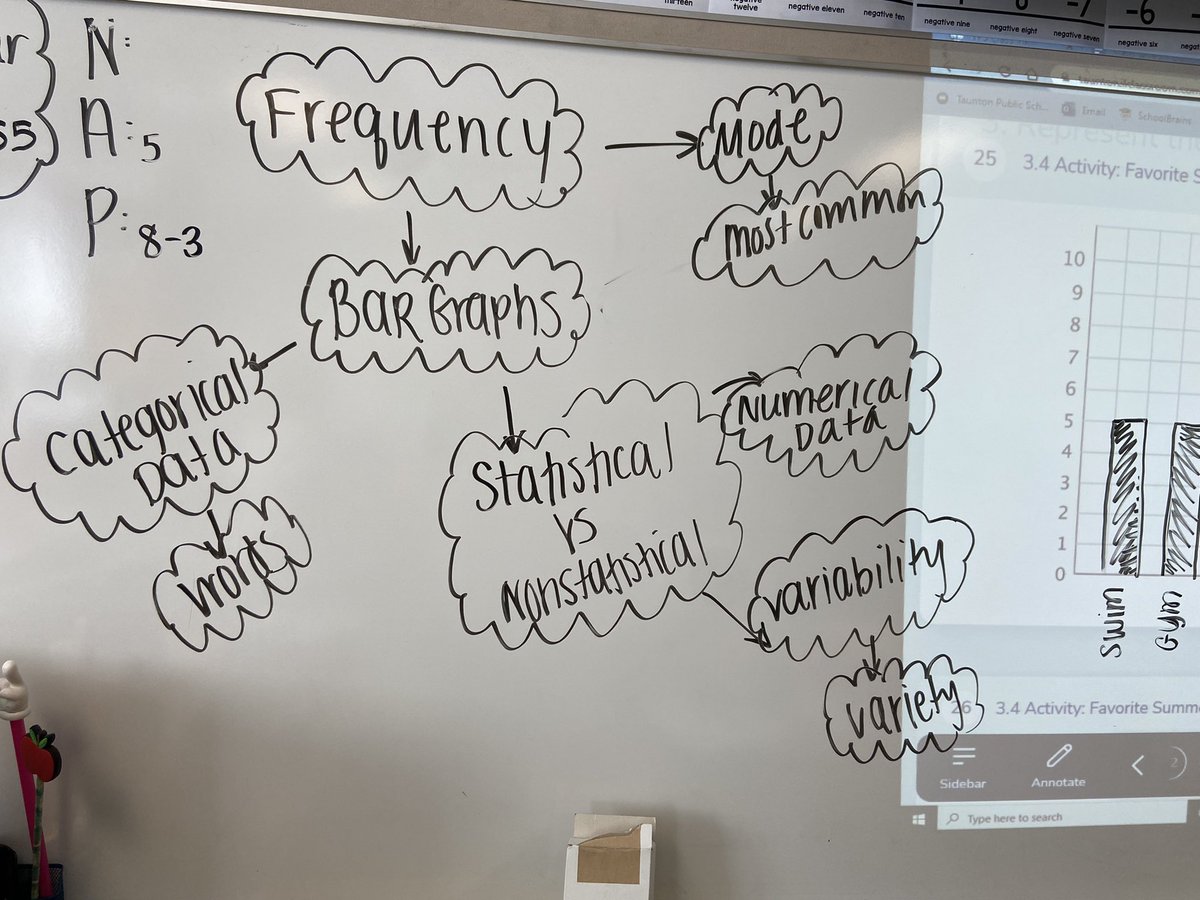 thirteen
negative twelve
negative eleven
negative ten
negative nine
negative eight
-7
negative seven
-6
negative six
55
N:
A: 5
P: 8-3
Frequency
Mode
most common
Bar Graphs
Categorical
Data
Words
Statistical
vs
Nonstatistical
Numerical
Data
Variability
Variety
Taunton Public Sch...
Email
SchoolBrains
25
3.4 Activity: Favorite S
10
9
8
7
6
5
4
3
2
1
0
Swim
Gym
26
3.4 Activity: Favorite Summ
Sidebar
Annotate
2
Type here to search